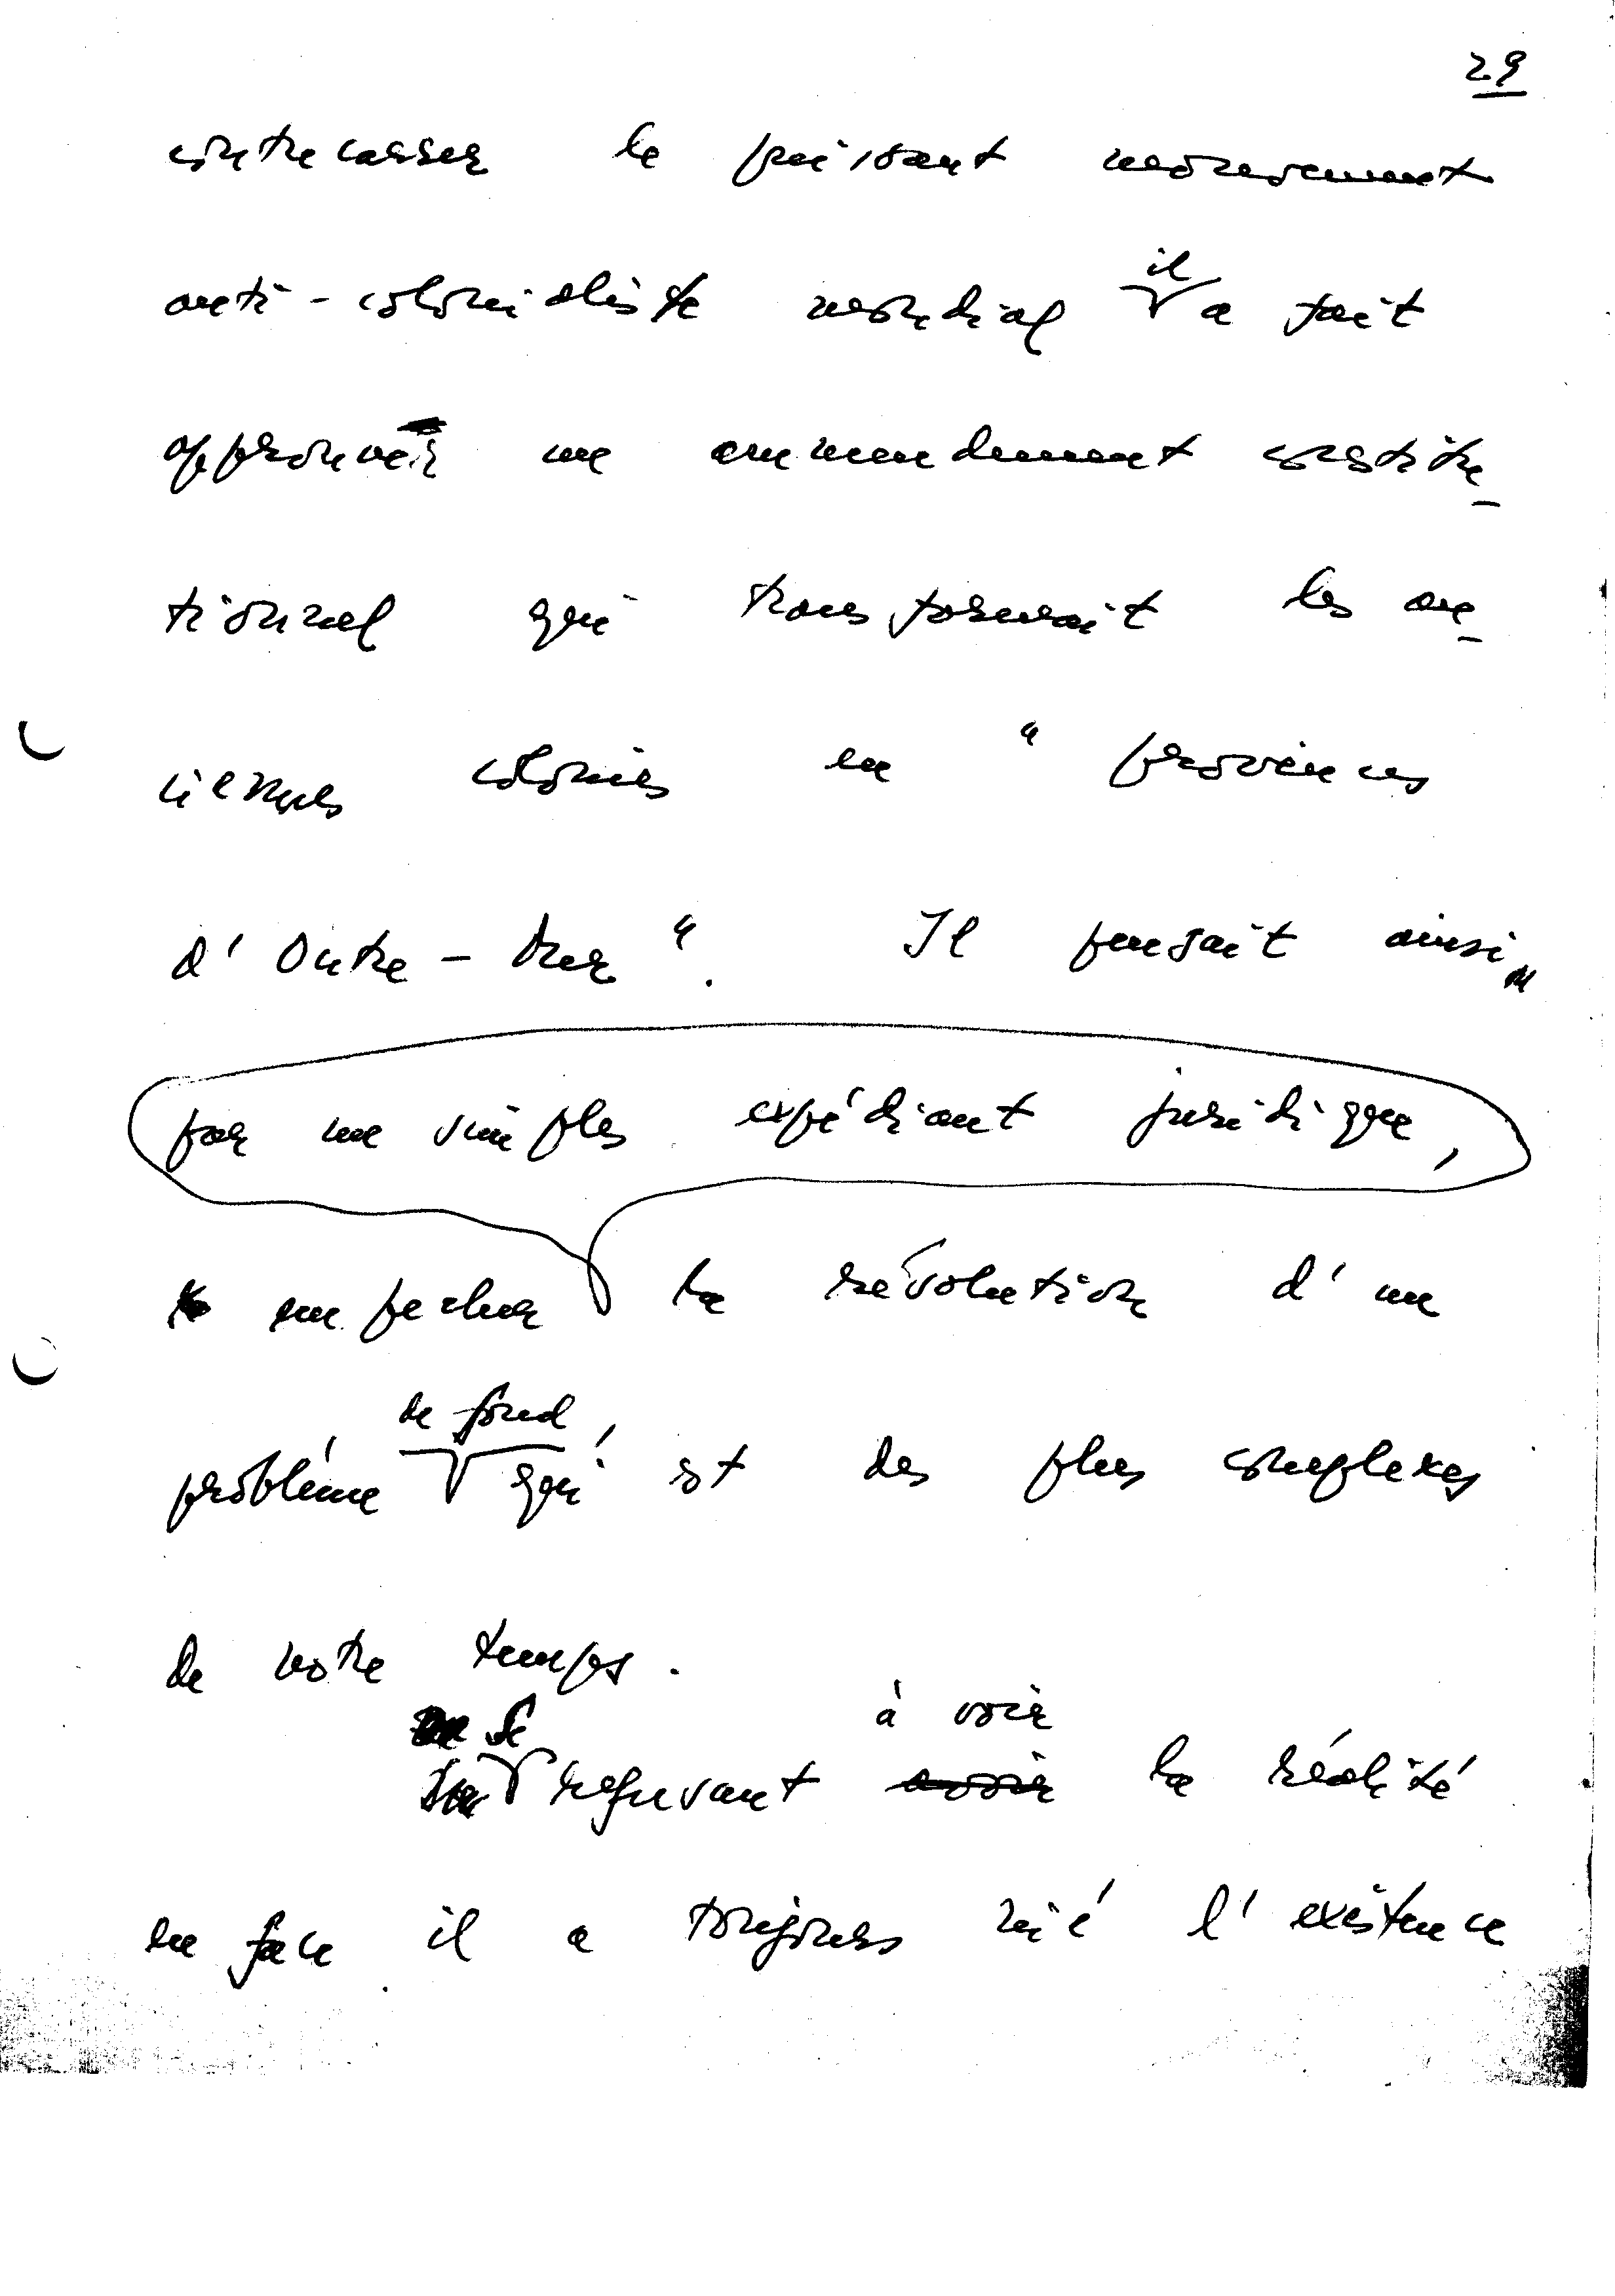 29
contrecasser le puissant mouvement
anti-colonialiste mondial il a fait
approuver un ammendement constitu-
tionnel qui transformait les an-
ciennes colonies en "provinces
d'Outre-Mer". Il pensait ainsi,
par un simples expédiant juridique,
empecher la révolution d'un
de fond
problème qui est des plus complexes
de notre temps.
se à voir
refusant avoir la réalité
en face il a toujours nié l'existence